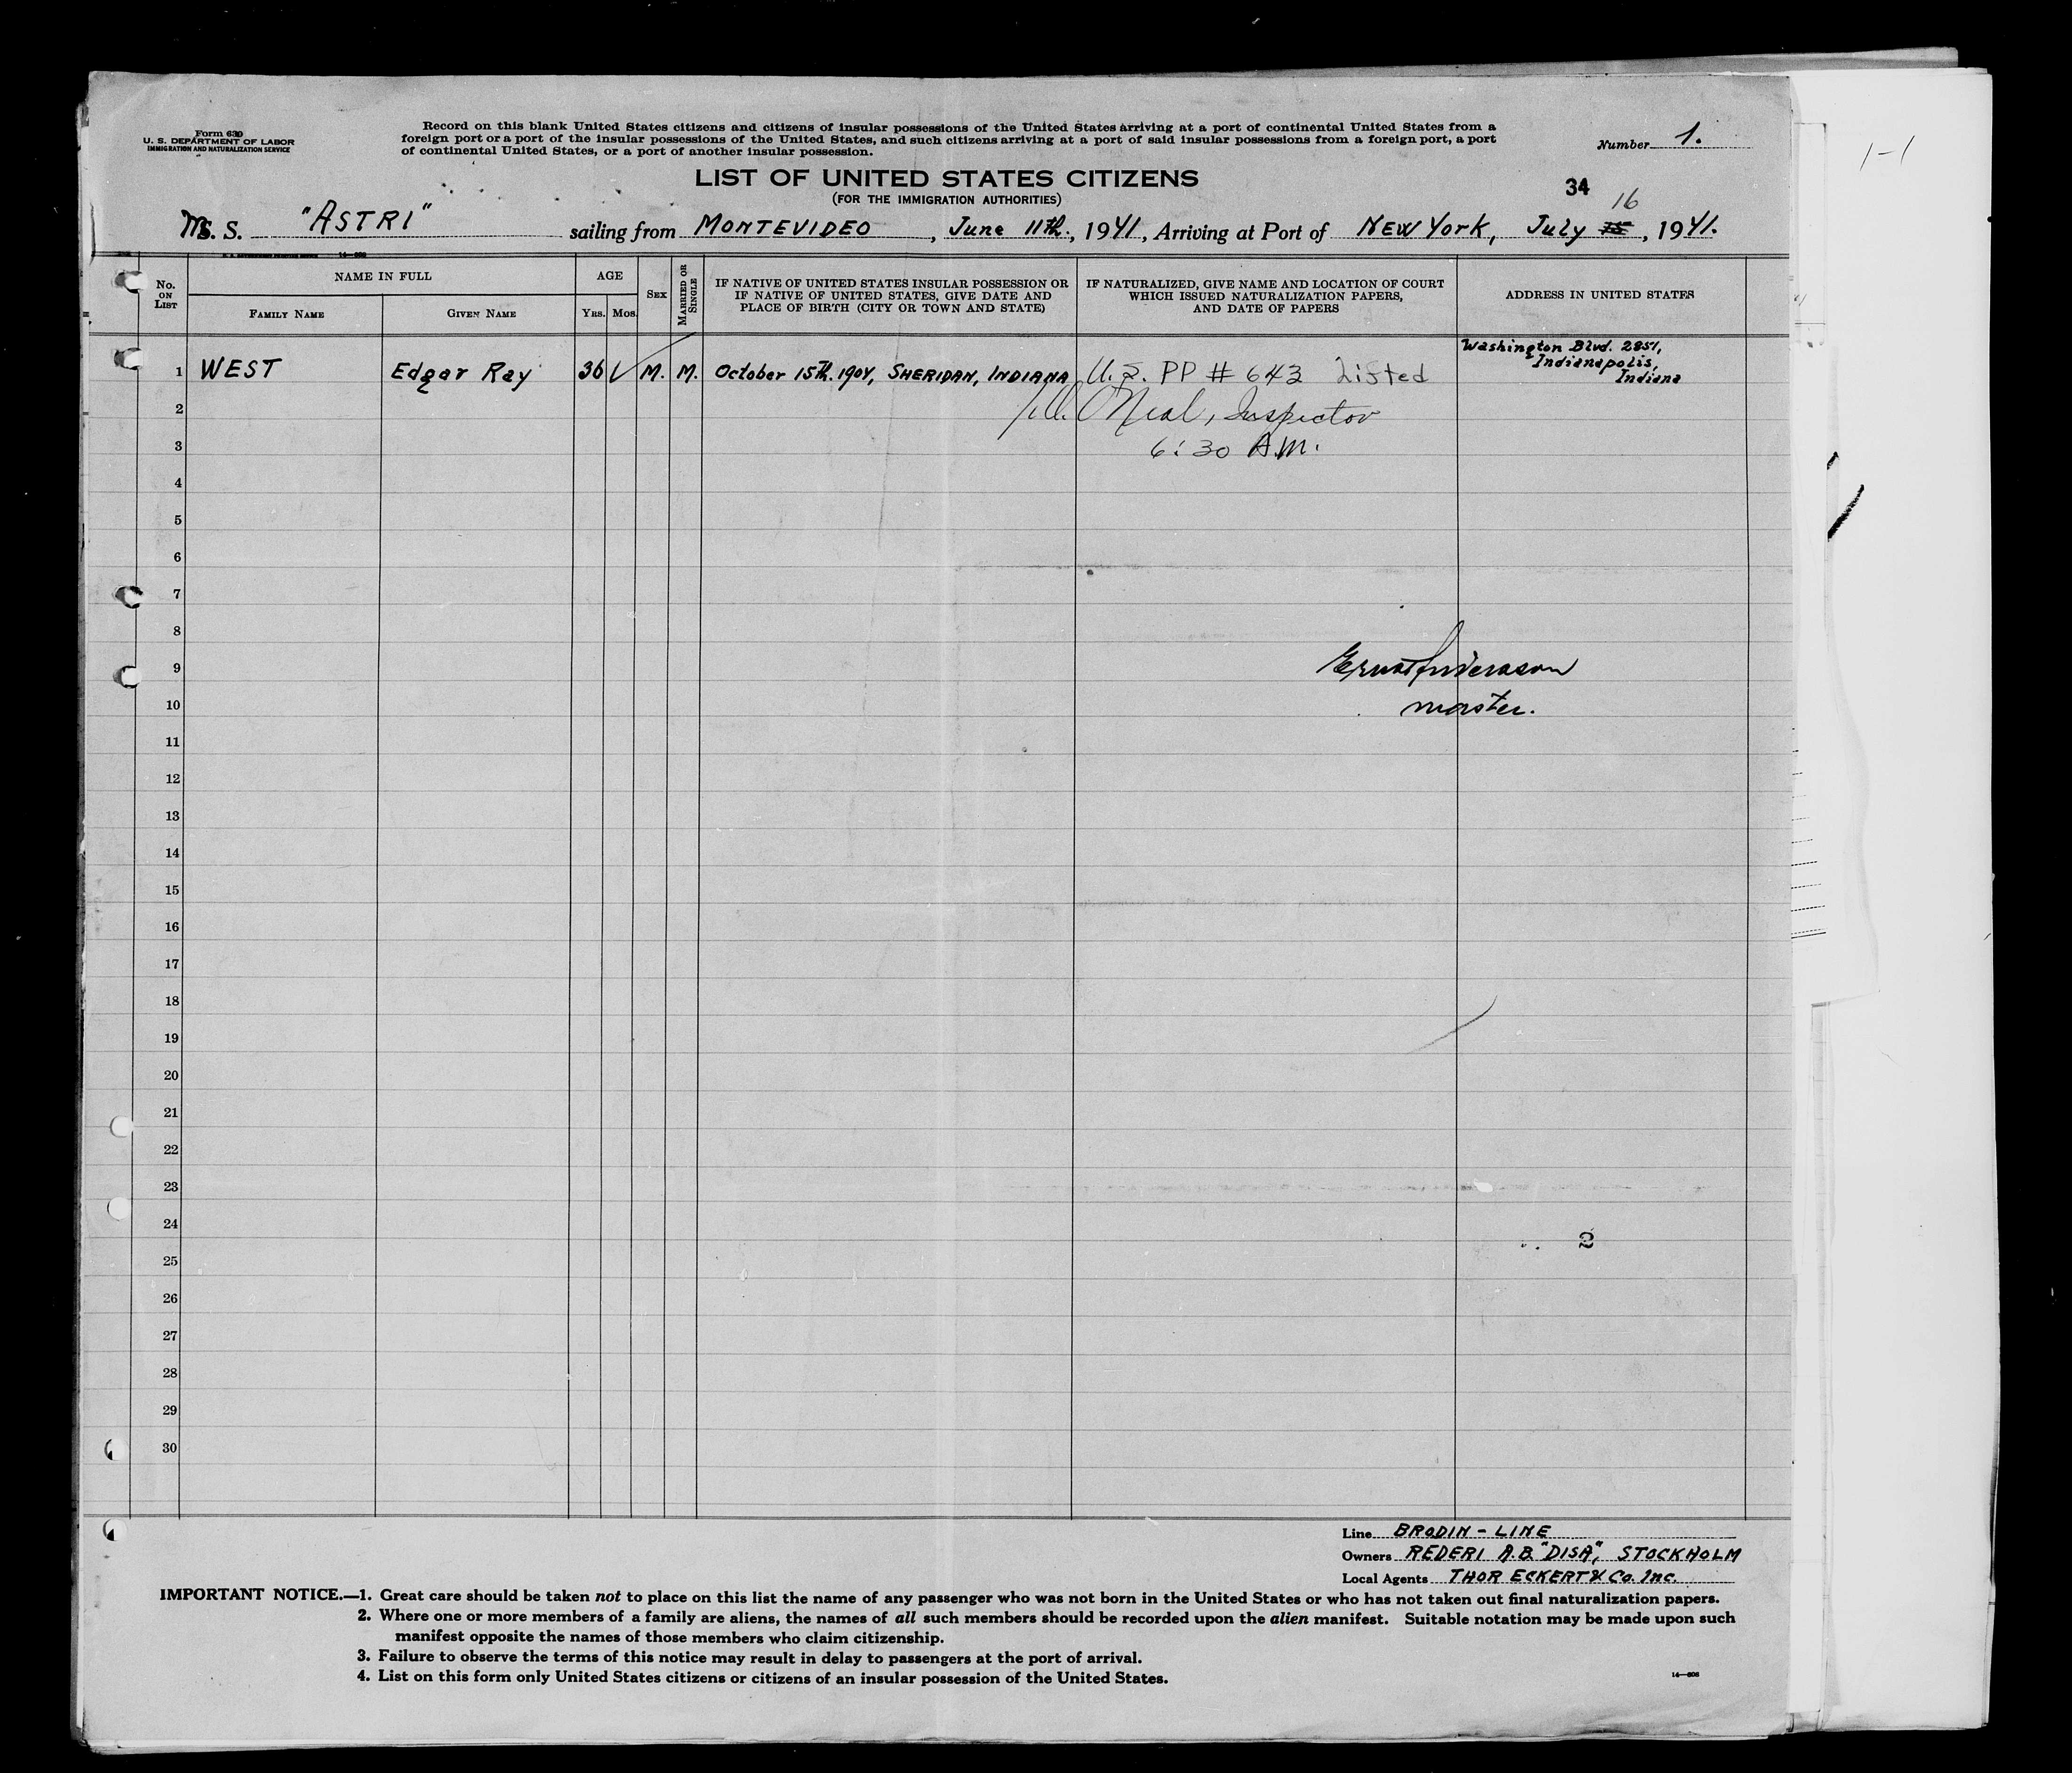 Form 630
U. S. DEPARTMENT OF LABOR
IMMIGRATION AND NATURALIZATION SERVICE
Record on this blank United States citizens and citizens of insular possessions of the United States arriving at a port of continental United States from a
foreign port or a port of the insular possessions of the United States, and such citizens arriving at a port of said insular possessions from a foreign port, a port
of continental United States, or a port of another insular possession.
Number 1.
LIST OF UNITED STATES CITIZENS
(FOR THE IMMIGRATION AUTHORITIES)
34
16
M. S. "ASTRI" sailing from MONTEVIDEO, June 11th., 1941, Arriving at Port of NEW YORK, July 15, 1941.
No. ON LIST
NAME IN FULL
FAMILY NAME
GIVEN NAME
AGE
YRS. MOS.
SEX
MARRIED OR SINGLE
IF NATIVE OF UNITED STATES INSULAR POSSESSION OR
IF NATIVE OF UNITED STATES, GIVE DATE AND
PLACE OF BIRTH (CITY OR TOWN AND STATE)
IF NATURALIZED, GIVE NAME AND LOCATION OF COURT
WHICH ISSUED NATURALIZATION PAPERS,
AND DATE OF PAPERS
ADDRESS IN UNITED STATES
1 WEST Edgar Ray 36 M. M. October 15th. 1904, SHERIDAN, INDIANA U.S. PP # 643 Lifted
Washington Blvd. 2851,
Indianapolis,
Indiana
2 O'Neal, Inspector
3 6:30 A.M.
4
5
6
7
8
9
10 master.
11
12
13
14
15
16
17
18
19
20
21
22
23
24
2
25
26
27
28
29
30
Line BRODIN - LINE
Owners REDERI A.B. "DISA", STOCKHOLM
Local Agents THOR ECKERT & Co. Inc.
IMPORTANT NOTICE.—1. Great care should be taken not to place on this list the name of any passenger who was not born in the United States or who has not taken out final naturalization papers.
2. Where one or more members of a family are aliens, the names of all such members should be recorded upon the alien manifest. Suitable notation may be made upon such
manifest opposite the names of those members who claim citizenship.
3. Failure to observe the terms of this notice may result in delay to passengers at the port of arrival.
4. List on this form only United States citizens or citizens of an insular possession of the United States.